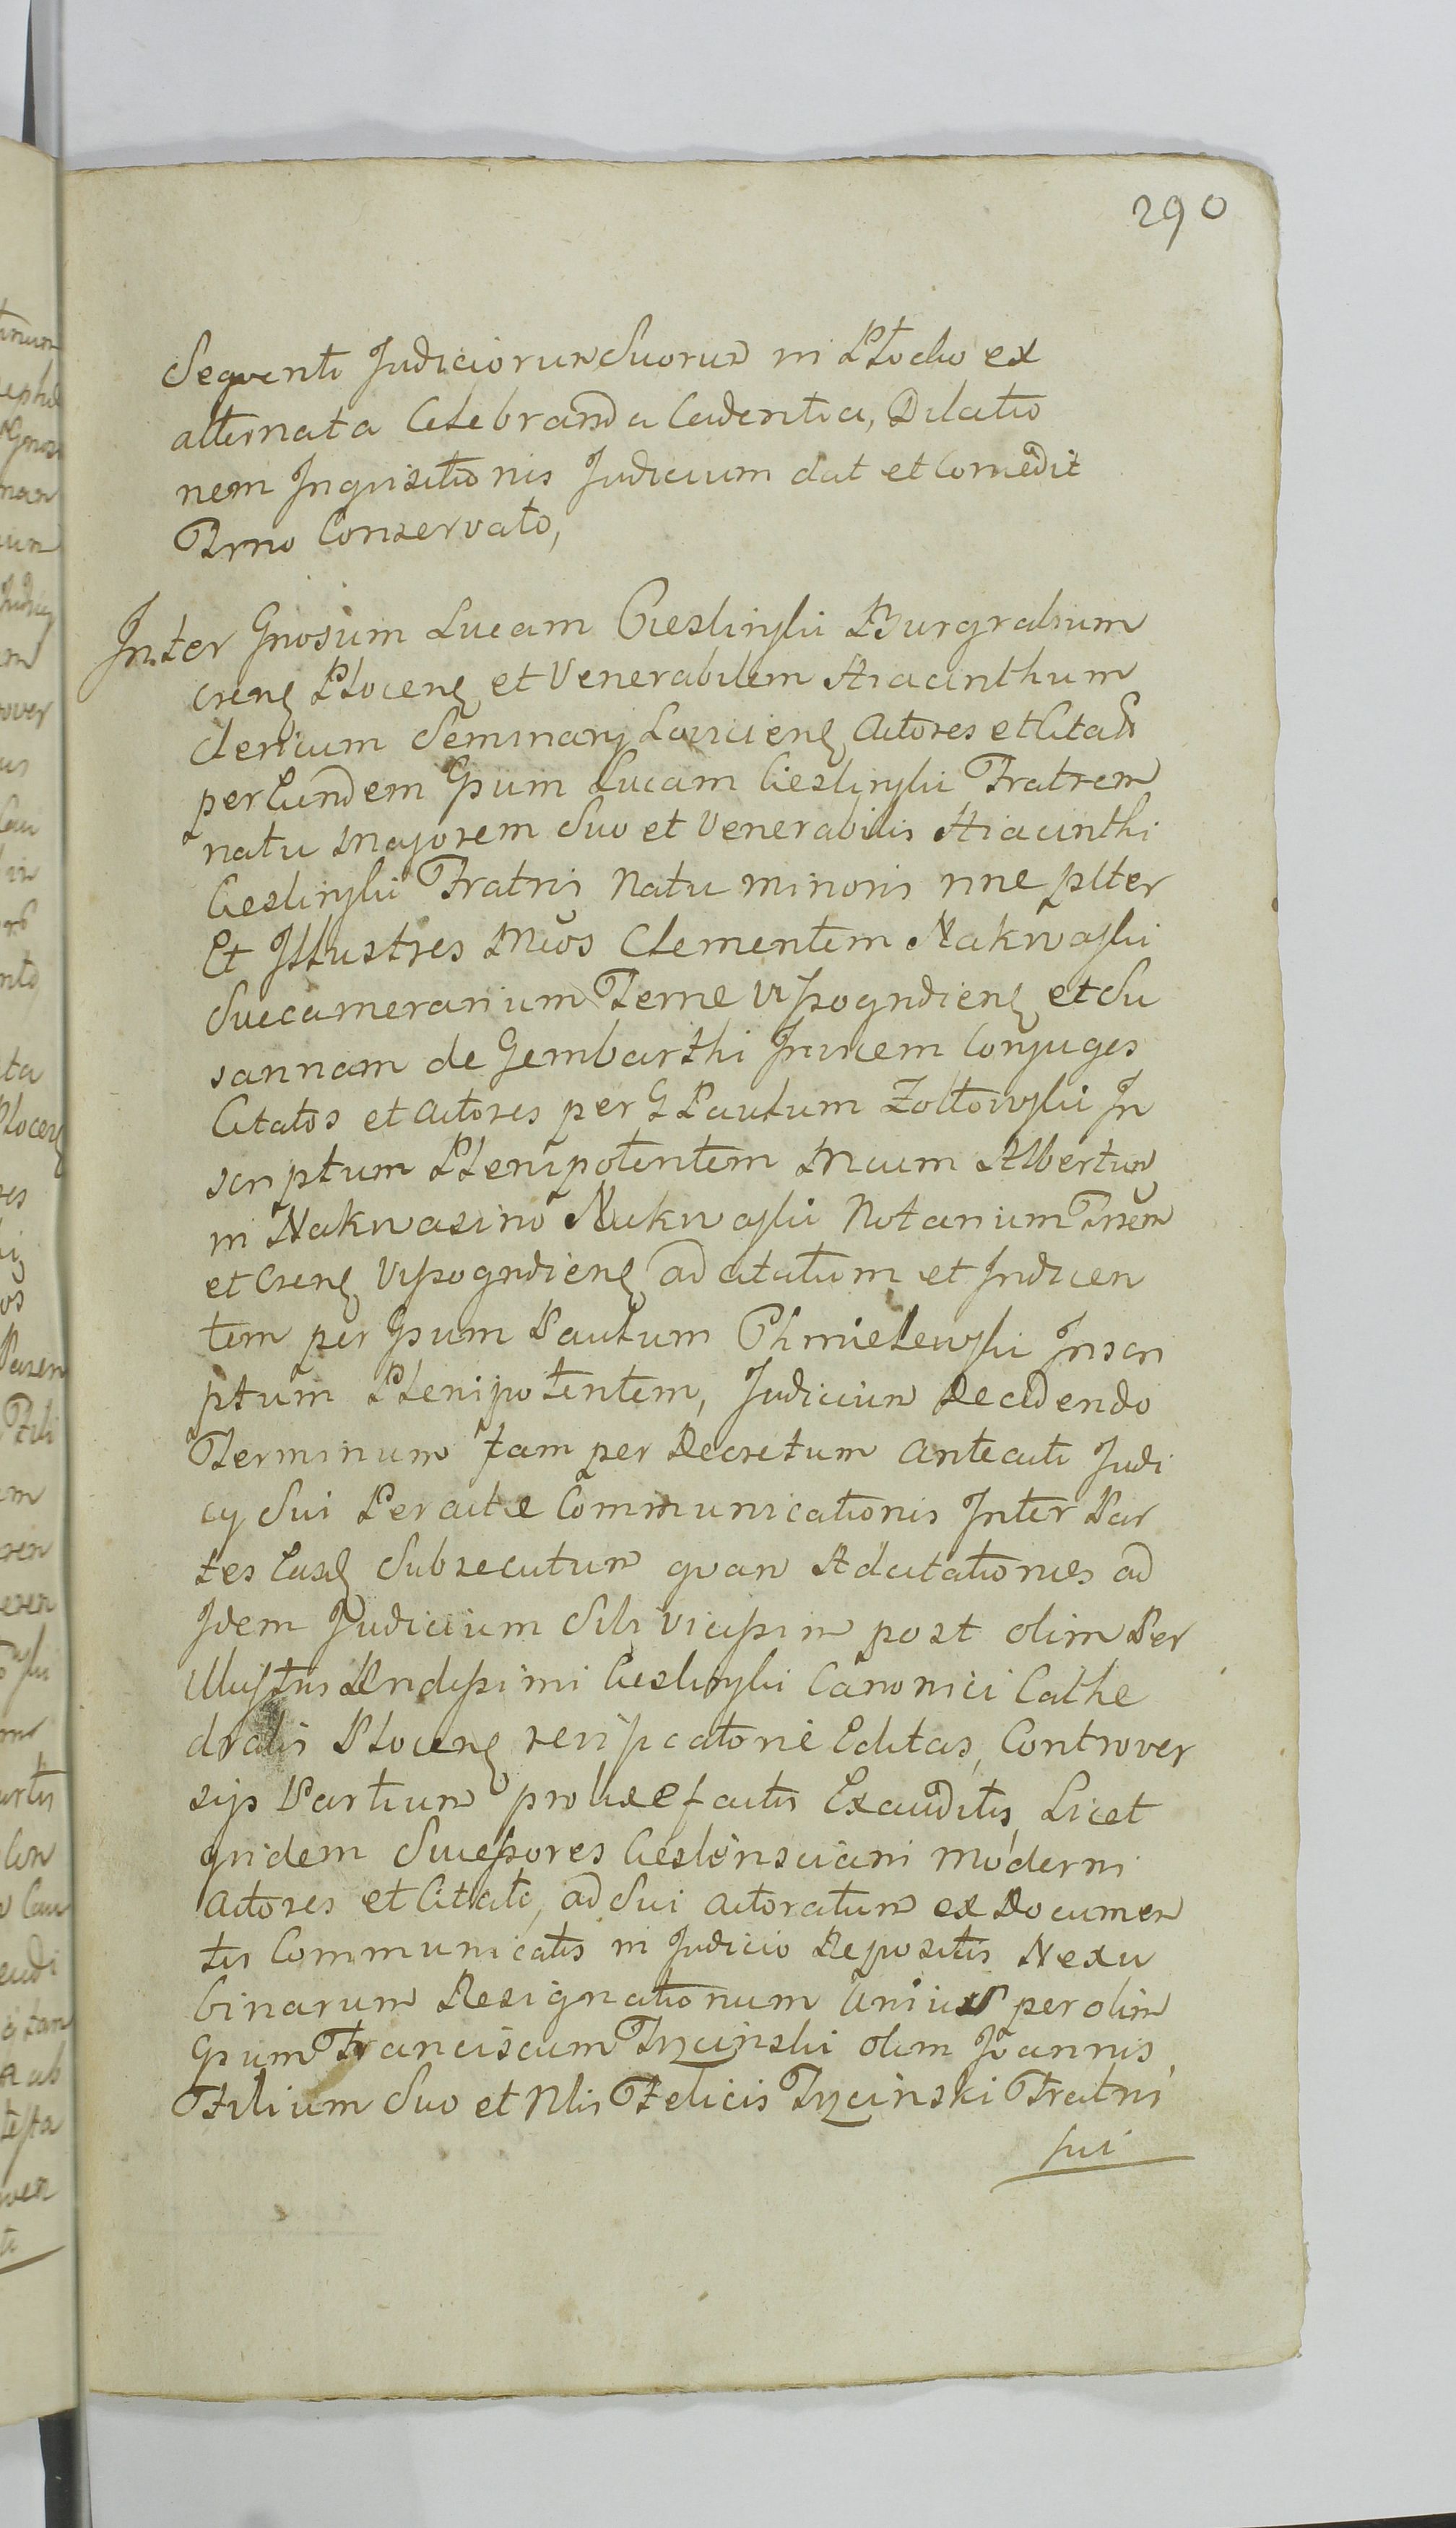 290
Sequenti Judiciorum Suorum in Plocko ex
alternata Celebranda Cadentia, Dilatio
nem Inquisitionis Judicium dat et Concedit
Trno Conservato,
Inter Gnosum Lucam Cieslinski Burgrabium
Crens Plocens et Venerabilem Hiacinthum
Clericum Seminarij Loviciens Actores et Citatos
per Eundem Gsum Lucam Cieslinski Fratrem
natu Majorem Suo et Venerabilis Hiacinthi
Cieslinski Fratris Natu minoris nne plter
Et Illustres Mcos Clementem Nakwaski
Succamerarium Terrae Wyszogrdiens et Su
sannam de Gembarthi Invicem Conjuges
Citatos et Actores per G Paulum Zoltowski In
scriptum Plenipotentem Mcum Albertum
in Nakwasino Nakwaski Notarium Trrem
et Crens Wyszogrdiens adcitatum et Inducen
tem per Gsum Paulum Chmielewski Inscri
ptum Plenipotentem, Judicium Decidendo
Terminum tam per Decretum Anteacti Judi
cij Sui Peractae Communicationis Inter Par
tes Easd Subsecutum quam Adcitationes ad
Idem Judicium Sibi vicissim post olim Per
Illustris Rndissimi Cieslinski Canonici Cathe
dralis Plocens recipcatorie Editas, Controver
sijs Partium prolixe factis Exauditis, Licet
quidem Successores Cieslinsciani moderni
Actores et Citati, ad Sui Actoratum ex Documen
tis Communicatis in Judicio Repositis Nexu
binarum Resignationum Unius per olim
Gsum Franciscum Tycinski olim Joannis
Filium Suo et Nlis Felicis Tycinski Fratris
sui